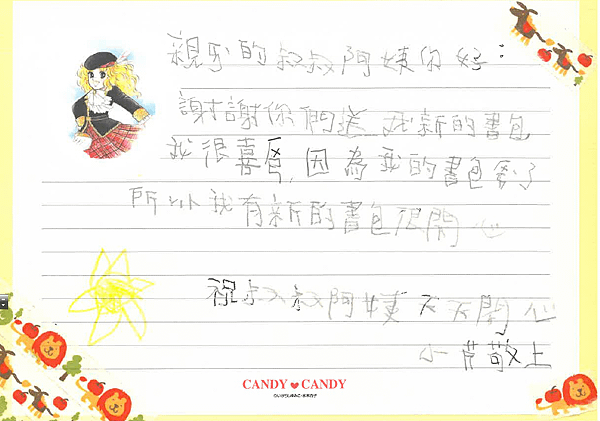 親的叔叔阿姨你好:
謝謝你們送我新的書包
我很喜, 因為我的書包了
所以我有新的書包很開心
祝叔叔阿姨天天開心
小敬上
CANDY♥CANDY